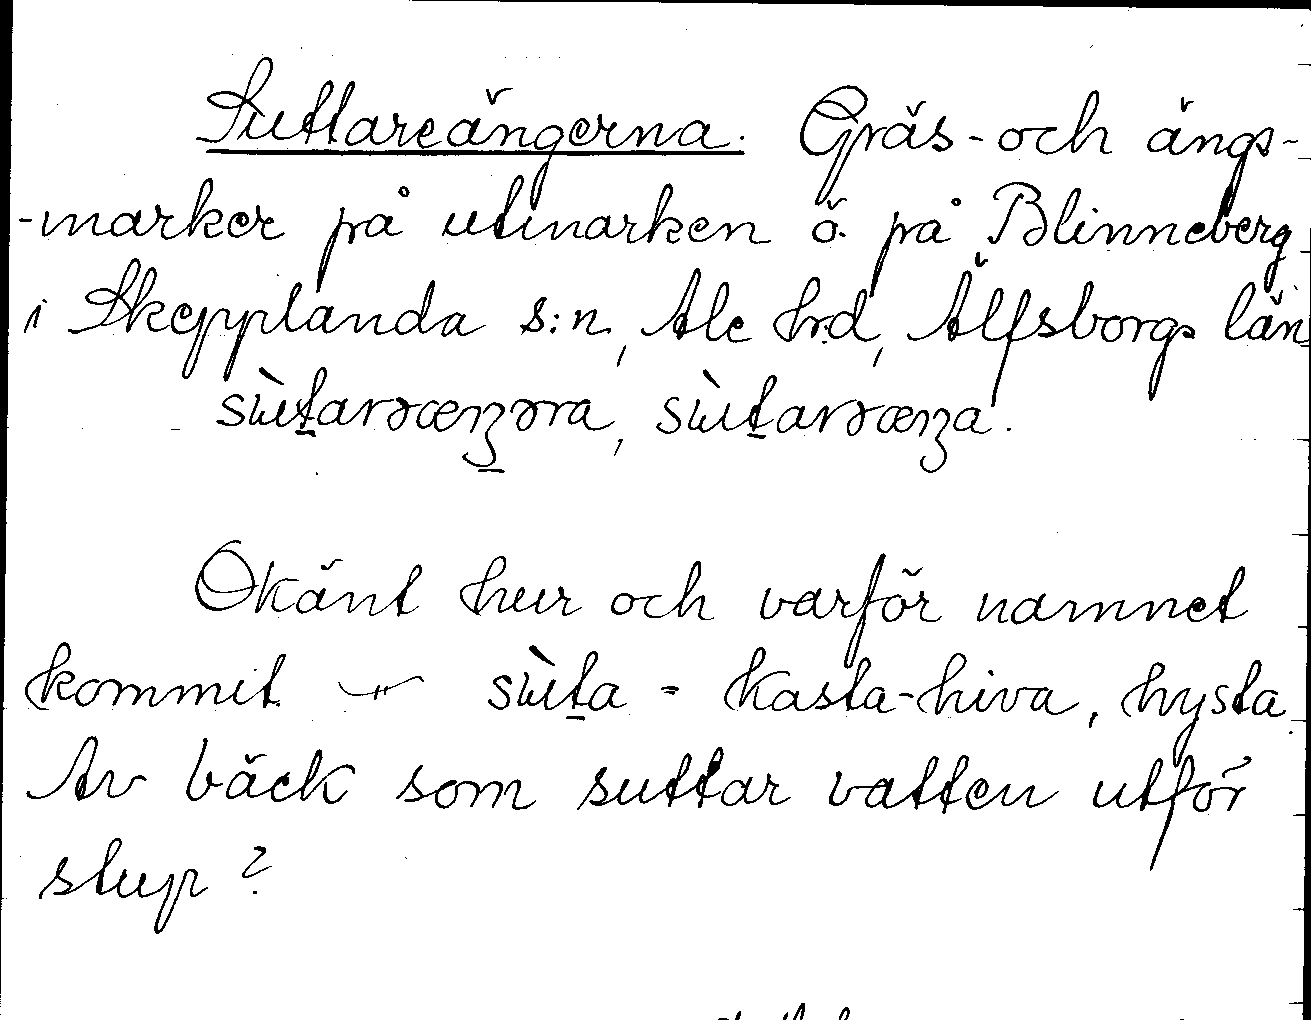 Suttareängerna. Gräs- och ängs-
-marker på utmarken ö. på Blinneberg
i Skepplanda s:n, Ale hrd, Älfsborgs län
sùṯarəæŋərna, sùṯarəæŋa.
Okänt hur och varför namnet
kommit — sùṯa = Kasta-hiva, hysta.
Av bäck som suttar vatten utför
stup?